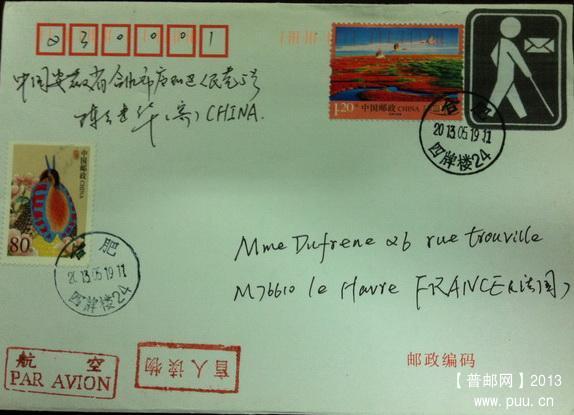 030001
中国安徽省合肥市庐阳区人民巷5号
陈 华(寄)CHINA.
1.20 中国邮政 CHINA
合肥
2013.05.19 11
四牌楼24
中国邮政
CHINA
80
合肥
2013.05.19 11
四牌楼24
Mme Dufrene 26 rue trouville
M76610 le Havre FRANCE(法国)
航 空
PAR AVION
盲人读物
邮政编码
【普邮网】2013
www.puu.cn